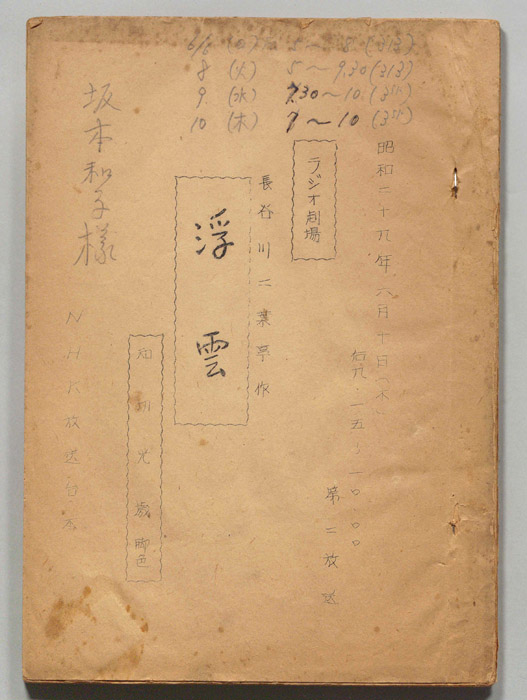 6/6 (日) 5〜8.
8 (火) 5〜9.30 (313)
9 (水) 7.30〜10.
10 (木) 7〜10
昭和二十九年六月十日(木)
一五〜一〇〇〇
第二放送
ラジオ劇場
長谷川二葉亭作
浮雲
脚色
坂本和子様
NHK放送台本